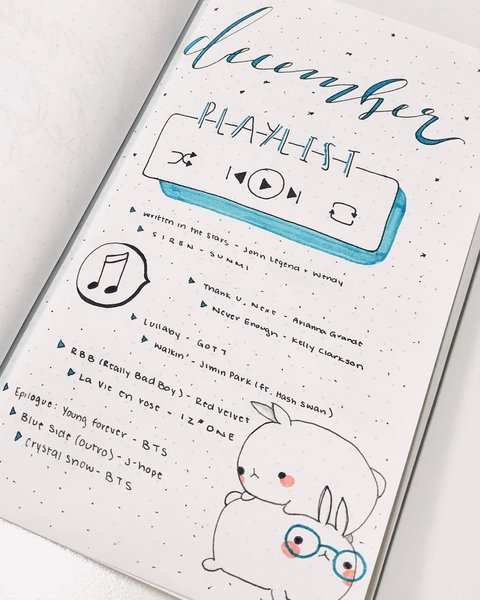 december
PLAYLIST
written in the stars - John Legend + Wendy
SIREN - SUNMI
Thank U, Next - Arianna Grande
Never Enough - Kelly Clarkson
Lullaby - GOT7
Walkin' - Jimin Park (ft. Hash Swan)
RBB (Really Bad Boy) - Red Velvet
La Vie en rose - IZ*ONE
Epilogue: Young forever - BTS
Blue Side (outro) - J-hope
Crystal snow - BTS